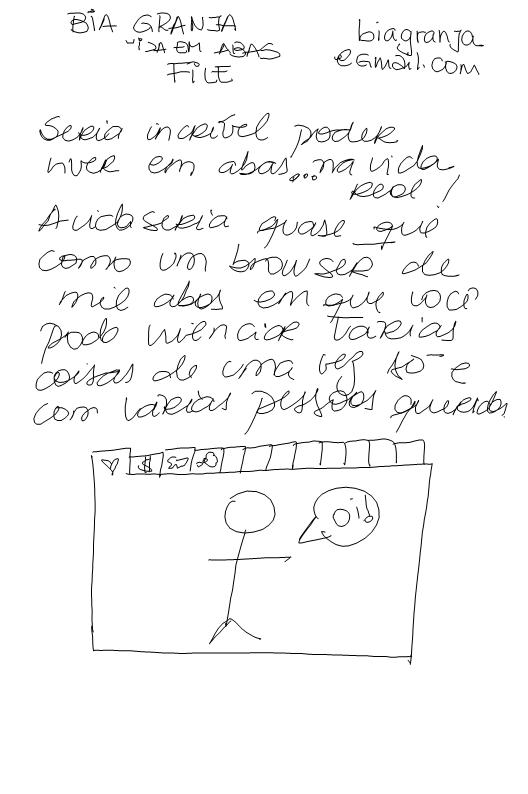 BIA GRANJA
VIDA EM ABAS
FILE
biagranja
@Gmail.com
Seria incrível poder
viver em abas...na vida
real!
A vida seria quase que
como um browser de
mil abas em que você
pode vivenciar várias
coisas de uma vez só e
com várias pessoas queridas
$
oi!